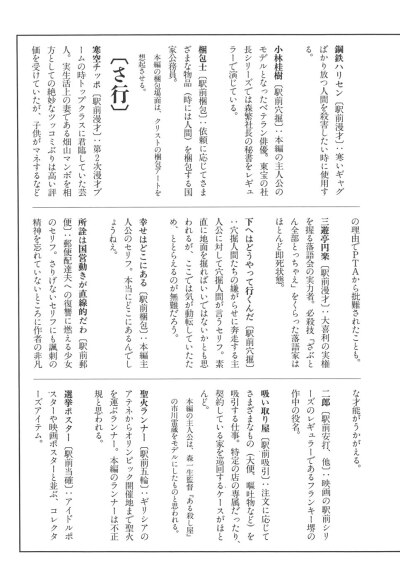 鋼鉄ハリセン［駅前漫才］：寒いギャグ
ばかり放つ人間を殺害したい時に使用す
る。
小林桂樹［駅前穴掘］：本編の主人公の
モデルとなったベテラン俳優。東宝の社
長シリーズでは森繁社長の秘書をレギュ
ラーで演じている。
梱包士［駅前梱包］：依頼に応じてさま
ざまな物品（時には人間）を梱包する国
家公務員。
本編の梱包場面は、クリストの梱包アートを
想起させる。
［さ行］
寒空チッポ［駅前漫才］：第２次漫才ブ
ームの時トップクラスに君臨していた芸
人。実生活上の妻である畑山マンボを相
方としての絶妙なツッコミぶりは高い評
価を受けていたが、子供がマネするなど
の理由でＰＴＡから批難されたことも。
三遊亭円楽［駅前漫才］：大喜利の実権
を握る落語会の実力者。必殺技、『ざぶと
ん全部とっちゃえ』をくらった落語家は
ほとんど即死状態。
下へはどうやって行くんだ［駅前穴掘］
：穴掘人間たちの嫌がらせに奔走する主
人公に対して穴掘人間が言うセリフ。素
直に地面を掘ればいいではないかとも思
われるが、ここでは気が動転していたた
め、ととらえるのが無難だろう。
幸せはどこにある［駅前梱包］：本編主
人公のセリフ。本当にどこにあるんでし
ょうねえ。
所詮は国営動きが直線的だわ［駅前郵
便］：郵便配達夫への復讐に燃える少女
のセリフ。さりげないセリフにも諷刺の
精神を忘れていないところに作者の非凡
な才能がうかがえる。
二郎［駅前安打、他］：映画の駅前シリ
ーズのレギュラーであるフランキー堺の
作中の役名。
吸い取り屋［駅前吸引］：注文に応じて
さまざまなもの（大便、嘔吐物など）を
吸引する仕事。特定の店の専属だったり、
契約している家を巡回するケースがほと
んど。
本編の主人公は、森一生監督『ある殺し屋』
の市川雷蔵をモデルにしたものと思われる。
聖火ランナー［駅前五輪］：ギリシアの
アテネからオリンピック開催地まで聖火
を運ぶランナー。本編のランナーは不正
規と思われる。
選挙ポスター［駅前当確］：アイドルポ
スターや映画ポスターと並ぶ、コレクタ
ーズアイテム。